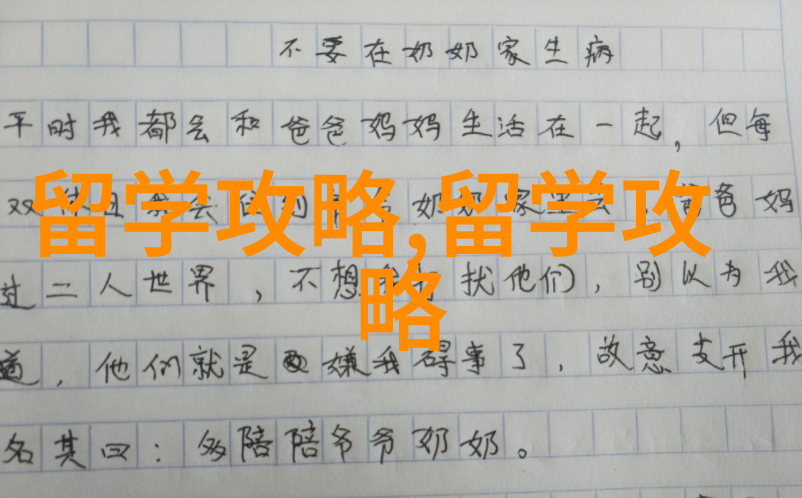 不要在奶奶家生病
平时我都会和爸爸妈妈生活在一起，但每
双休日我会住到 奶奶家 爸爸妈
过二人世界，不想 扰他们，别以为我
道，他们就是嫌我碍事了，故意支开我
名其曰：多陪陪爷爷奶奶。
留学攻略,留学攻
略